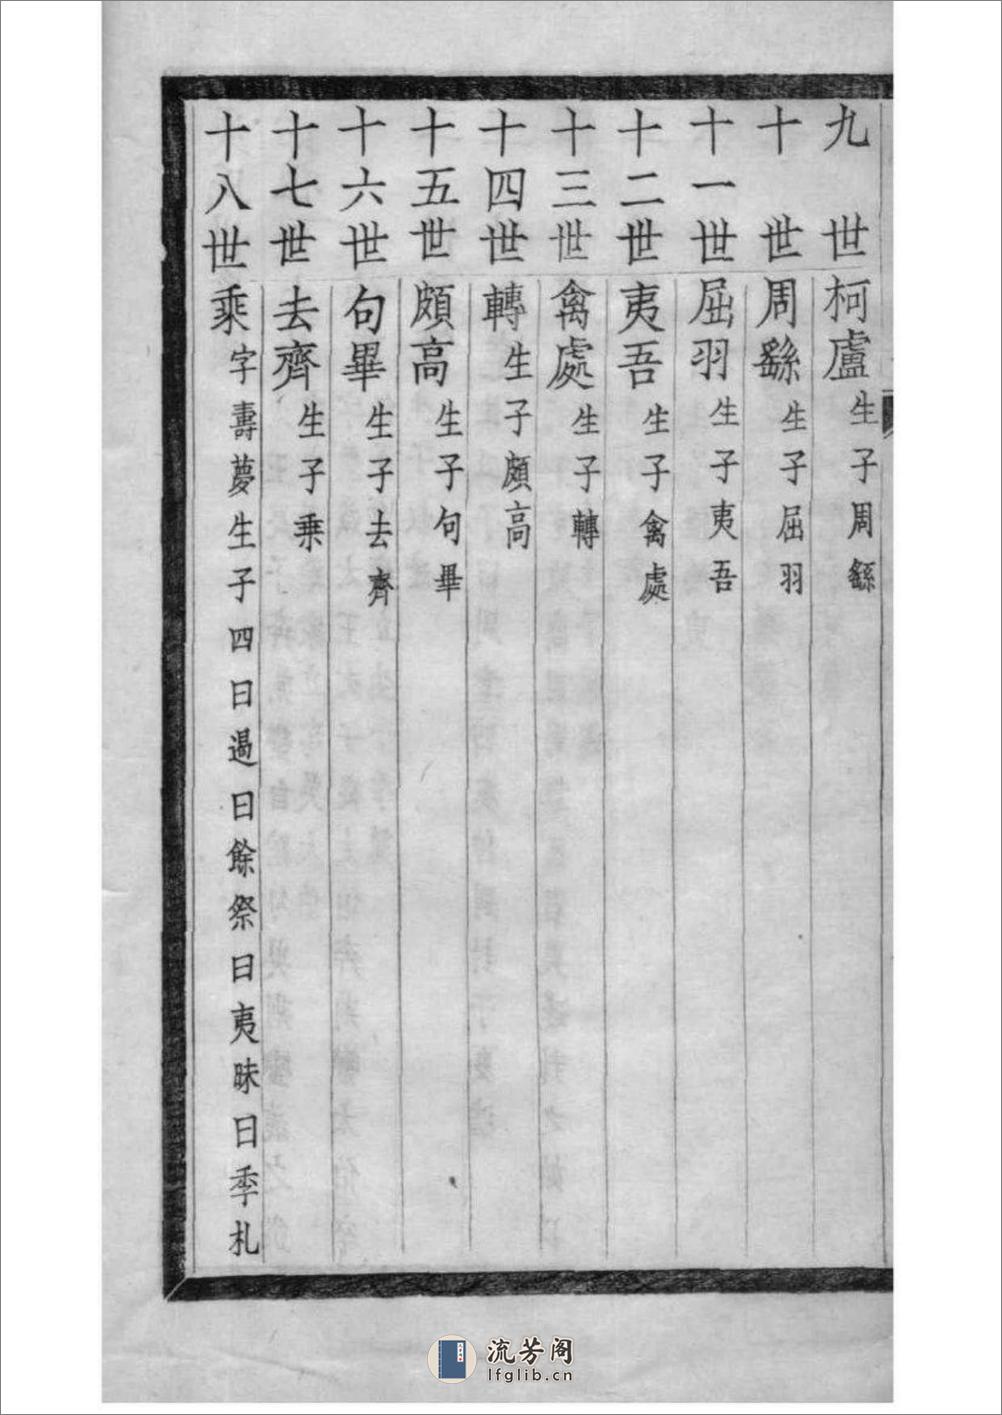 九世柯盧生子周繇
十世周繇生子屈羽
十一世屈羽生子夷吾
十二世夷吾生子禽處
十三世禽處生子轉
十四世轉生子頗高
十五世頗高生子句畢
十六世句畢生子去齊
十七世去齊生子乗
十八世乘字壽夢生子四曰遏曰餘祭曰夷昧曰季札
流芳阁
lfglib.cn